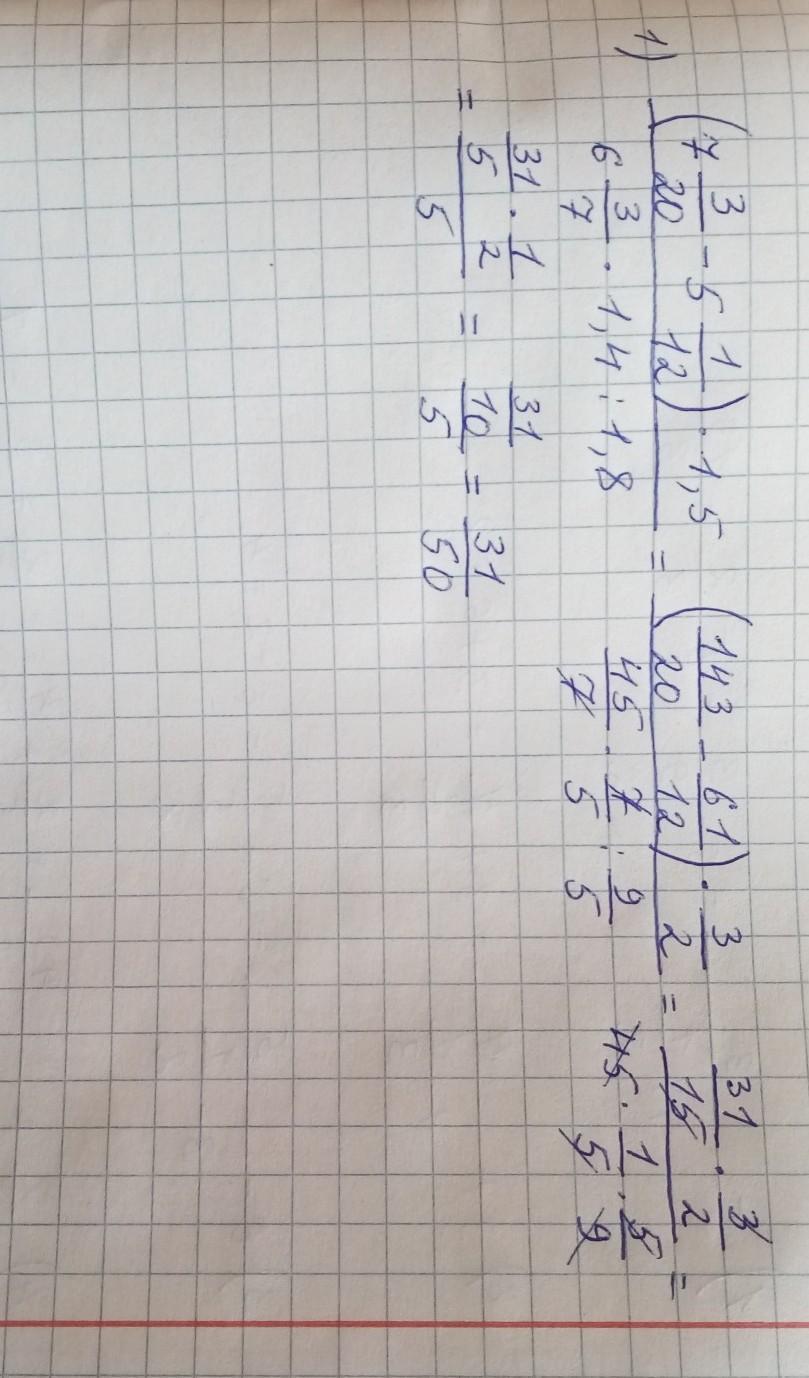 1) ((7 3/20 - 5 1/12) · 1,5)/(6 3/7 · 1,4 : 1,8) = ((143/20 - 61/12) · 3/2)/(45/7 · 7/5 : 9/5) = (31/15 · 3/2)/(45 · 1/5 · 5/9) =
= (31/5 · 1/2)/5 = (31/10)/5 = 31/50